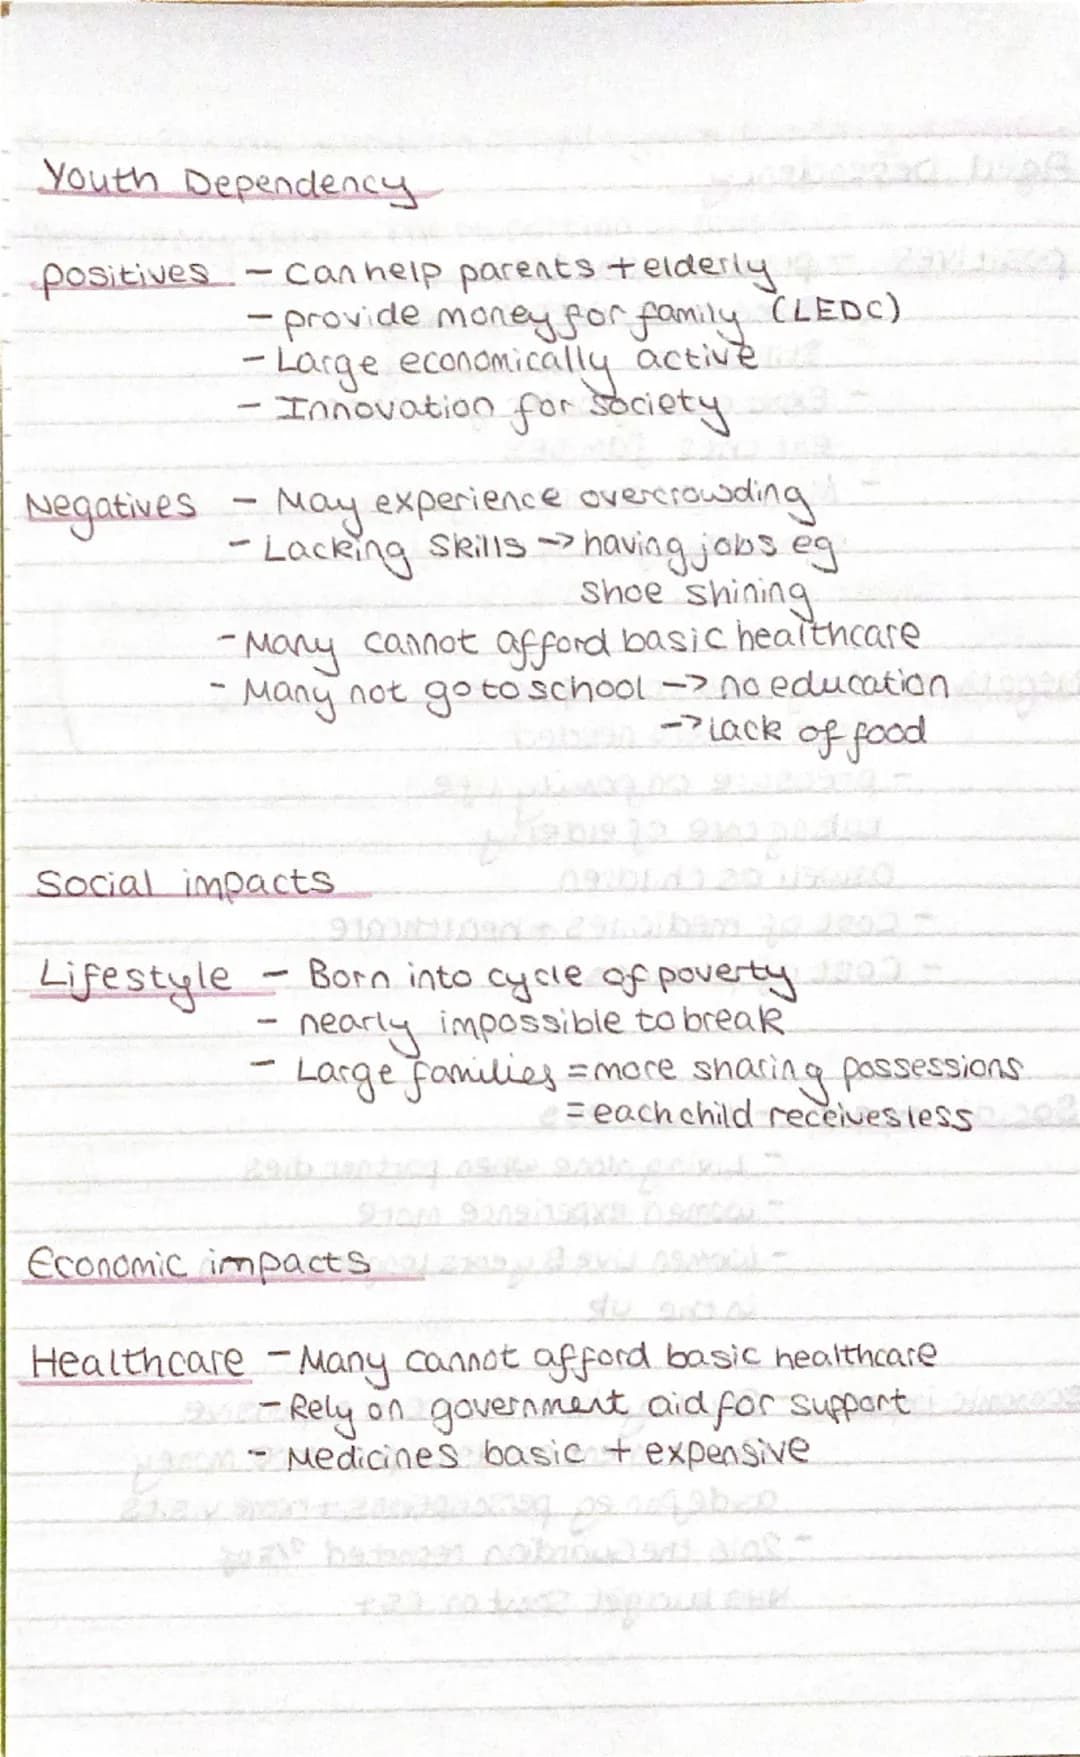 Youth Dependency
positives - can help parents + elderly
- provide money for family (LEDC)
- Large economically active
- Innovation for society
Negatives - May experience overcrowding
- Lacking skills -> having jobs eg
shoe shining
- Many cannot afford basic healthcare
- Many not go to school -> no education
-> Lack of food
Social impacts
Lifestyle - Born into cycle of poverty
- nearly impossible to break
- Large families = more sharing possessions
= each child receives less
Economic impacts
Healthcare - Many cannot afford basic healthcare
- Rely on government aid for support
- Medicines basic + expensive